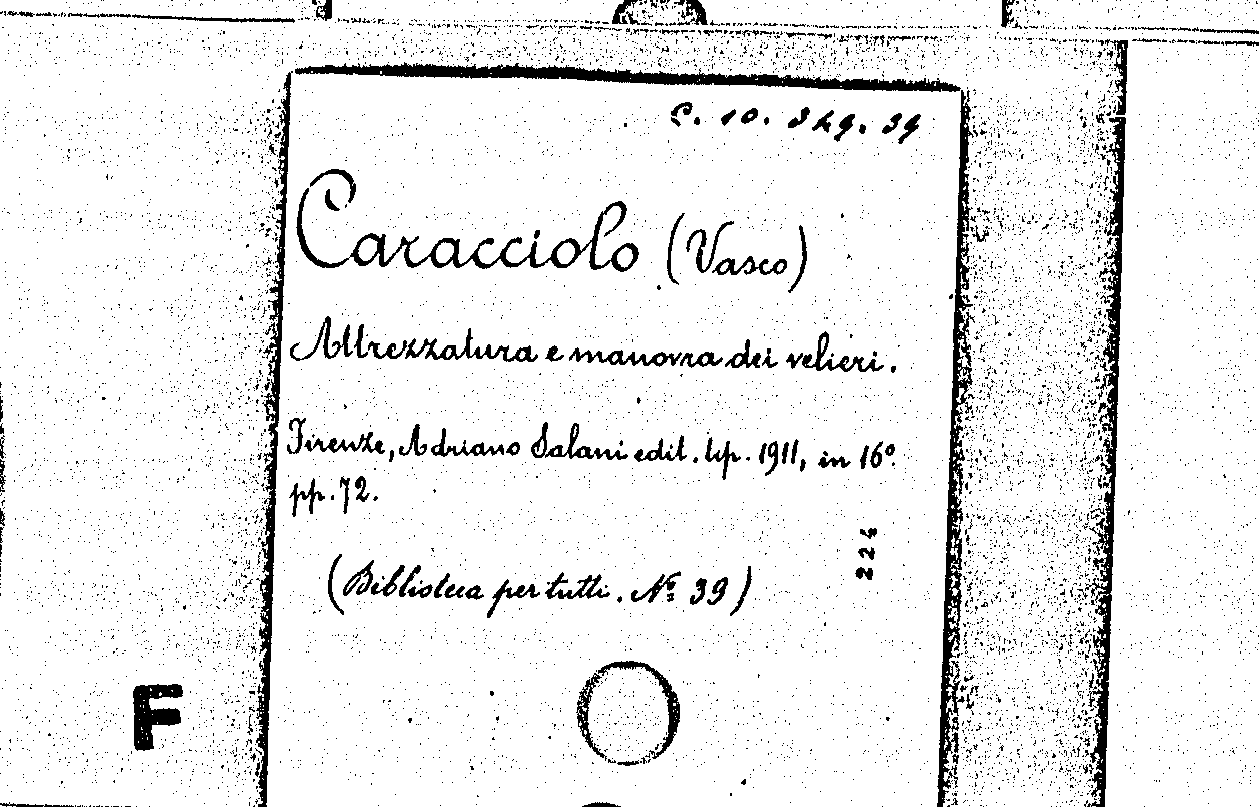 C. 10. 349. 39
Caracciolo (Vasco)
Attrezzatura e manovra dei velieri.
Firenze, Adriano Salani edit. tip. 1911, in 16º.
pp. 72.
224
(Biblioteca per tutti. Nº 39)
F